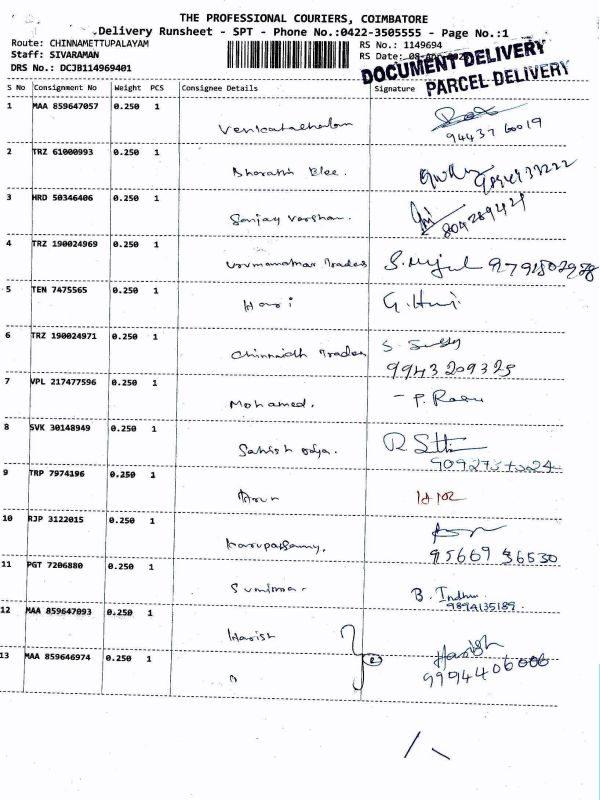 THE PROFESSIONAL COURIERS, COIMBATORE
Delivery Runsheet - SPT - Phone No.:0422-3505555 - Page No.:1
Route: CHINNAMETTUPALAYAM
RS No.: 1149694
Staff: SIVARAMAN
RS Date:
DRS No.: DCJB114969401
DOCUMENT DELIVERY
PARCEL DELIVERY
S No Consignment No Weight PCS Consignee Details Signature
1 MAA 859647057 0.250 1
Venkatachalam
94437 60019
2 TRZ 61000993 0.250 1
Bharath Blee.
3 HRD 50346406 0.250 1
Sanjay Varshan.
4 TRZ 190024969 0.250 1
Traders
9791502958
5 TEN 7475565 0.250 1
Hari G. Hari
6 TRZ 190024971 0.250 1
Traders
9943209325
7 VPL 217477596 0.250 1
Mohamed.
8 SVK 30148949 0.250 1
Sathish
9 TRP 7974196 0.250 1
Arun
10 RJP 3122015 0.250 1
Karuppasamy. 95669 36530
11 PGT 7206880 0.250 1
B. Indhu.
9894135189.
12 MAA 859647093 0.250 1
Harish
13 MAA 859646974 0.250 1
Harish
2